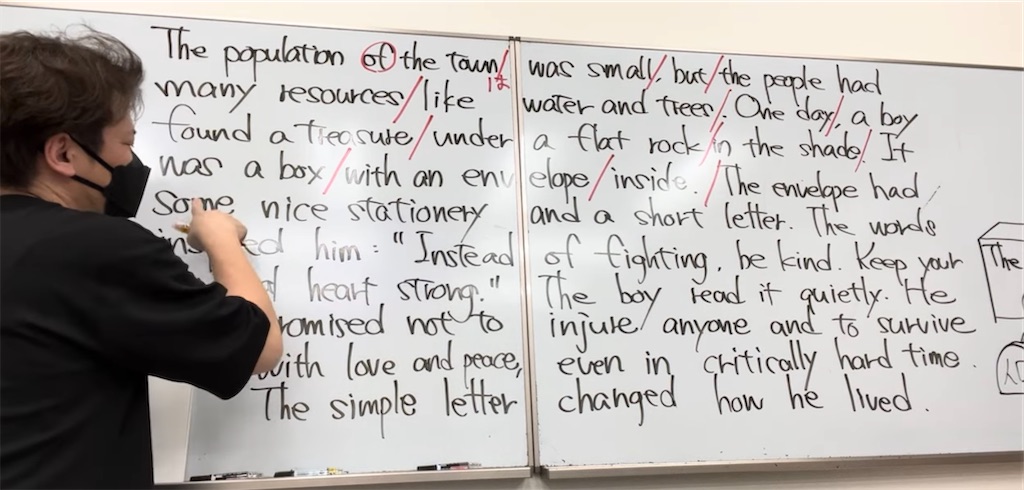 The population of the town was small, but the people had
は
many resources like water and trees. One day, a boy
found a treasure under a flat rock in the shade. It
was a box with an envelope inside. The envelope had
some nice stationery and a short letter. The words
him: "Instead of fighting, be kind. Keep your
heart strong." The boy read it quietly. He
romised not to injure anyone and to survive
with love and peace, even in critically hard time.
The simple letter changed how he lived.
The